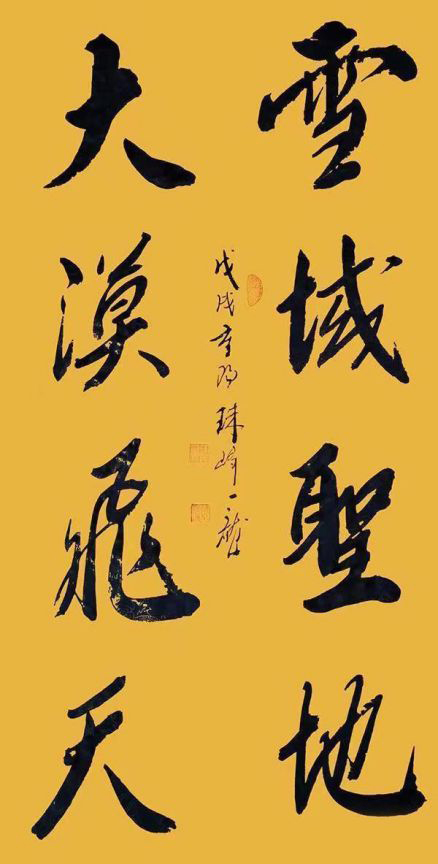 雪域聖地
大漠飛天
戊戌重陽珠峰一龍